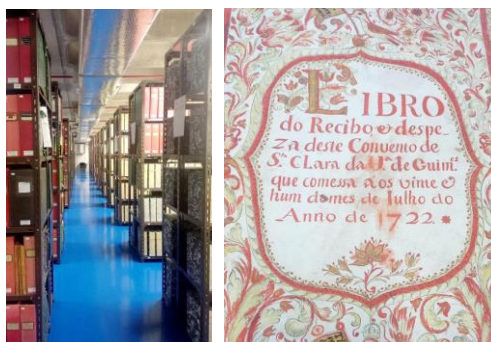 LIBRO
do Recibo & despe-
za deste Convemo de
S.ta CLara da V.a de Guim.s
que comessa aos vinte &
hum do mes de Iulho do
Anno de 1722.